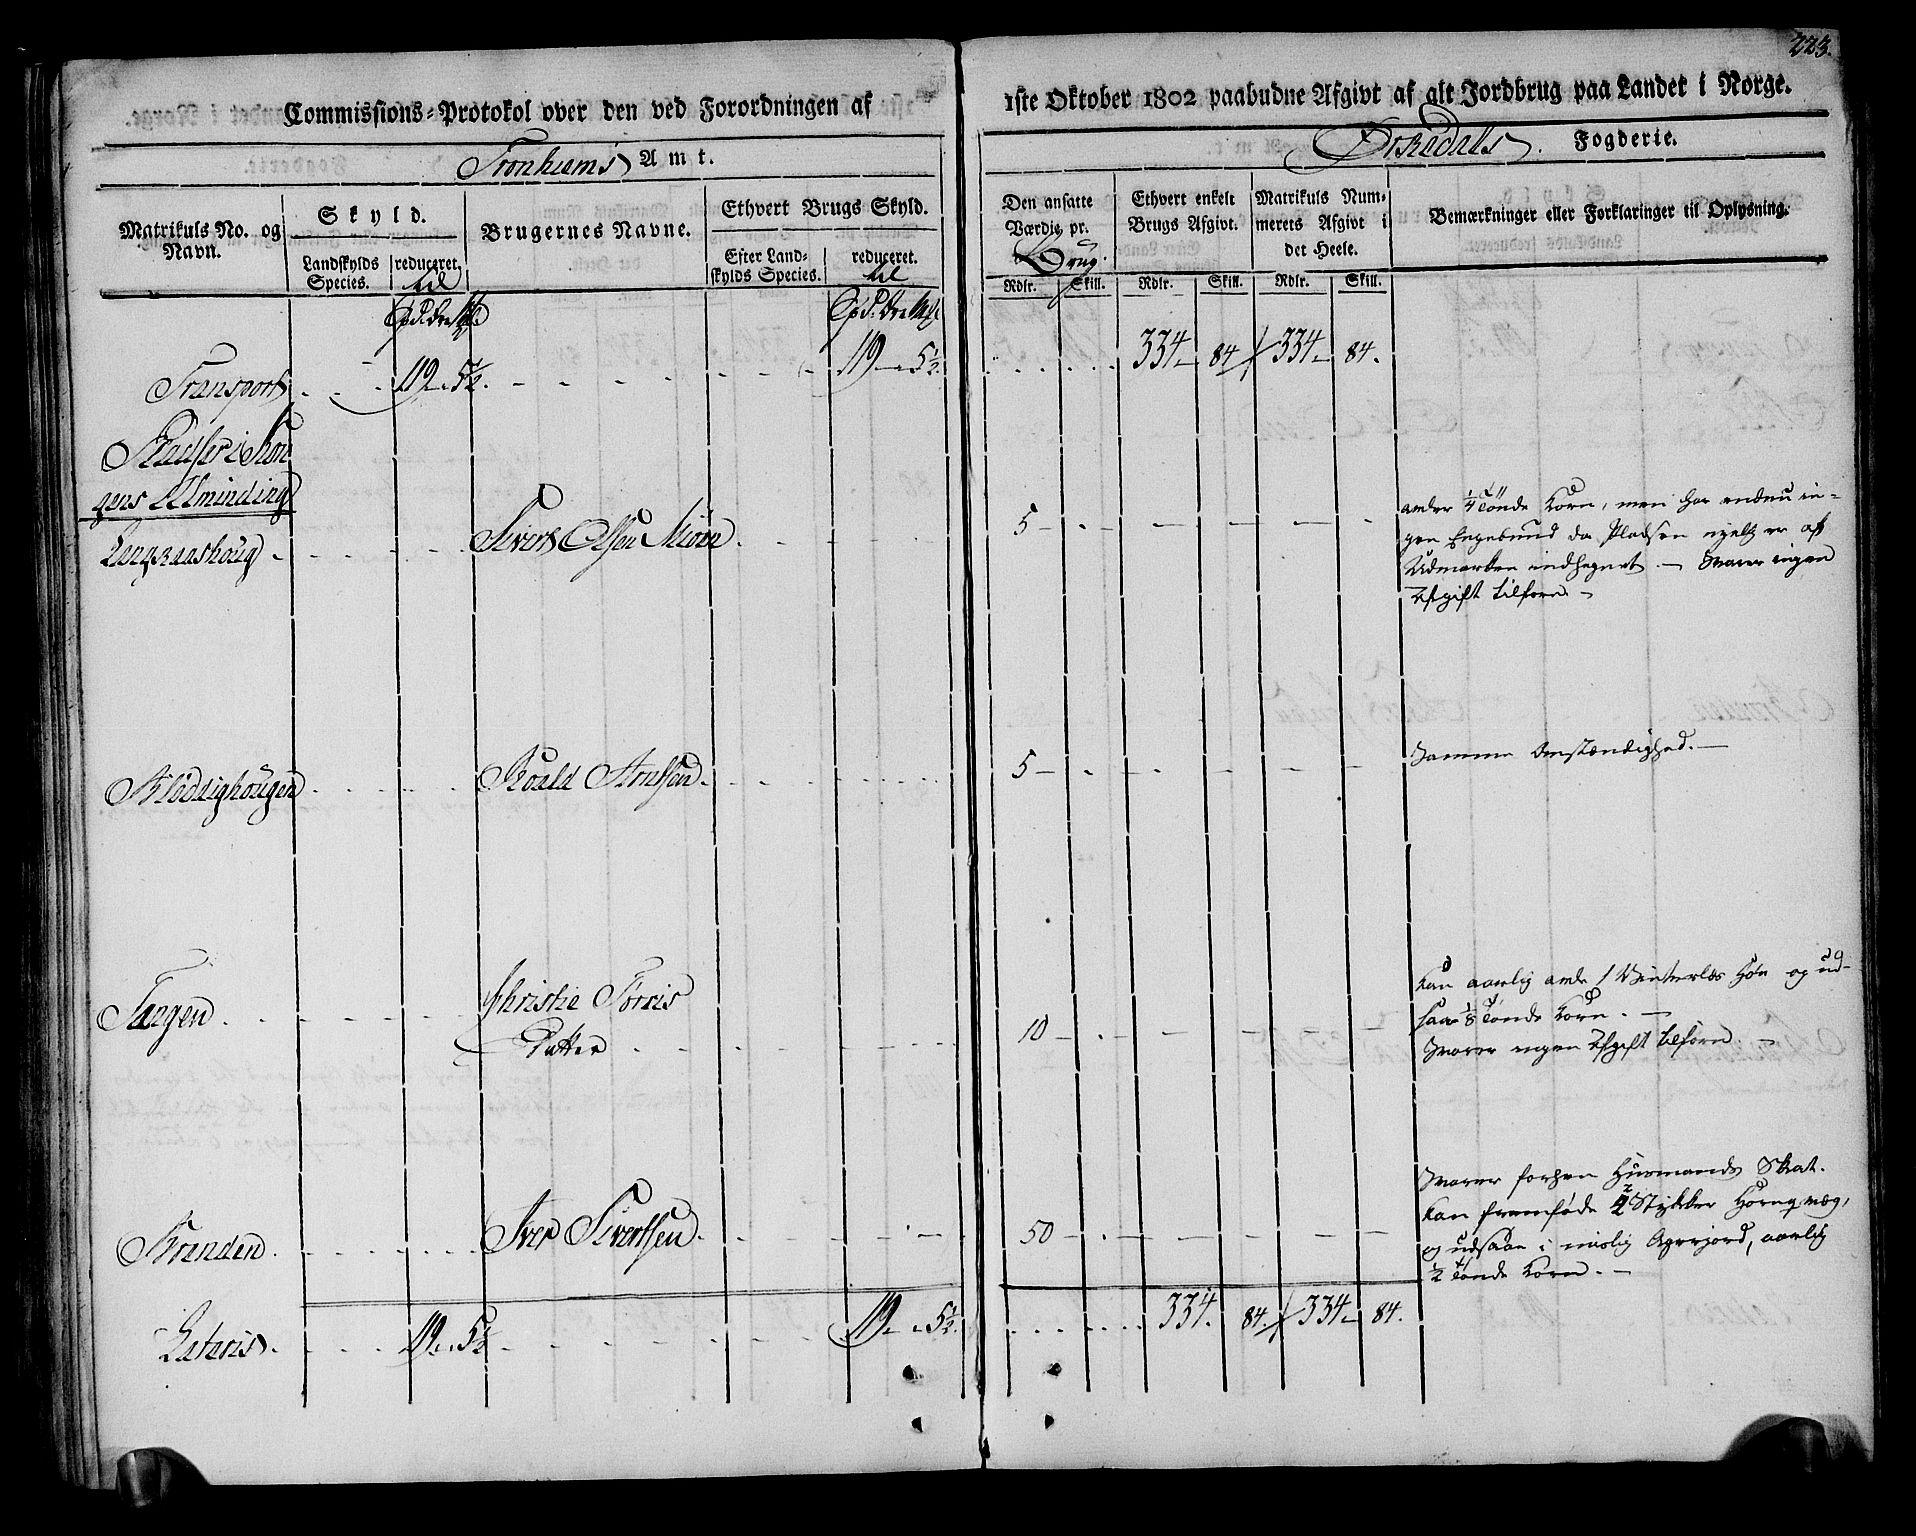 223.
Commissions-Protokol over den ved Forordningen af 1ste Oktober 1802 paabudne Afgivt af alt Jordbrug paa Landet i Norge.
Tronhiems Amt. Örkedalls Fogderie.
Matrikuls No. og Navn.
Skyld.
Landskylds Species.
reduceret. til
Brugernes Navne.
Ethvert Brugs Skyld.
Efter Landskylds Species.
reduceret. til
Den ansatte Værdie pr. Brug.
Ethvert enkelt Brugs Afgivt.
Matrikuls Nummerets Afgivt i det Heele.
Bemærkninger eller Forklaringer til Oplysning.
Rdlr. Skill. Rdlr. Skill. Rdlr. Skill.
Transport 119 - 5½. 119 - 5½. 334 - 84 334 - 84.
Pladser i Kon
gens Alminding
Langaashoug Sivert Olsen Moen 5 -
under ¼ Tönde Korn, men har endnu in-
gen Engebund da Pladsen nylig er af
Udmarken indhegnet. - Svarer ingen
Afgift tilforn. -
Kløddighougen Roald Arntsen 5 - Samme Omstændighed. -
Tangen Christie Torris
Datter 10
Kan aarlig avle 1 Vinterlæs Höe og ud-
saae ⅛ Tönde Korn. -
Svarer ingen Afgift tilforn. -
Branden Iver Sivertsen 50 -
Svarer forhen Huusmands Skat.
Kan fremföde 2 Stykker Hornqvæg,
og udsaae i maslig Agerjord, aarlig
½ Tönde Korn. -
Lateris 119 - 5½ 119 - 5½. 334. 84. 334 - 84.